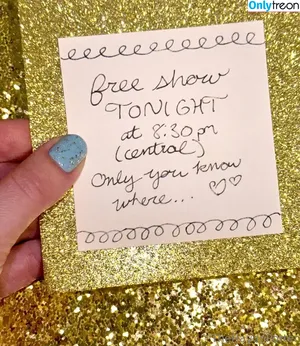 Onlytreon
free show
TONIGHT
at 8:30 pm
(central)
Only you know
where... ♡♡